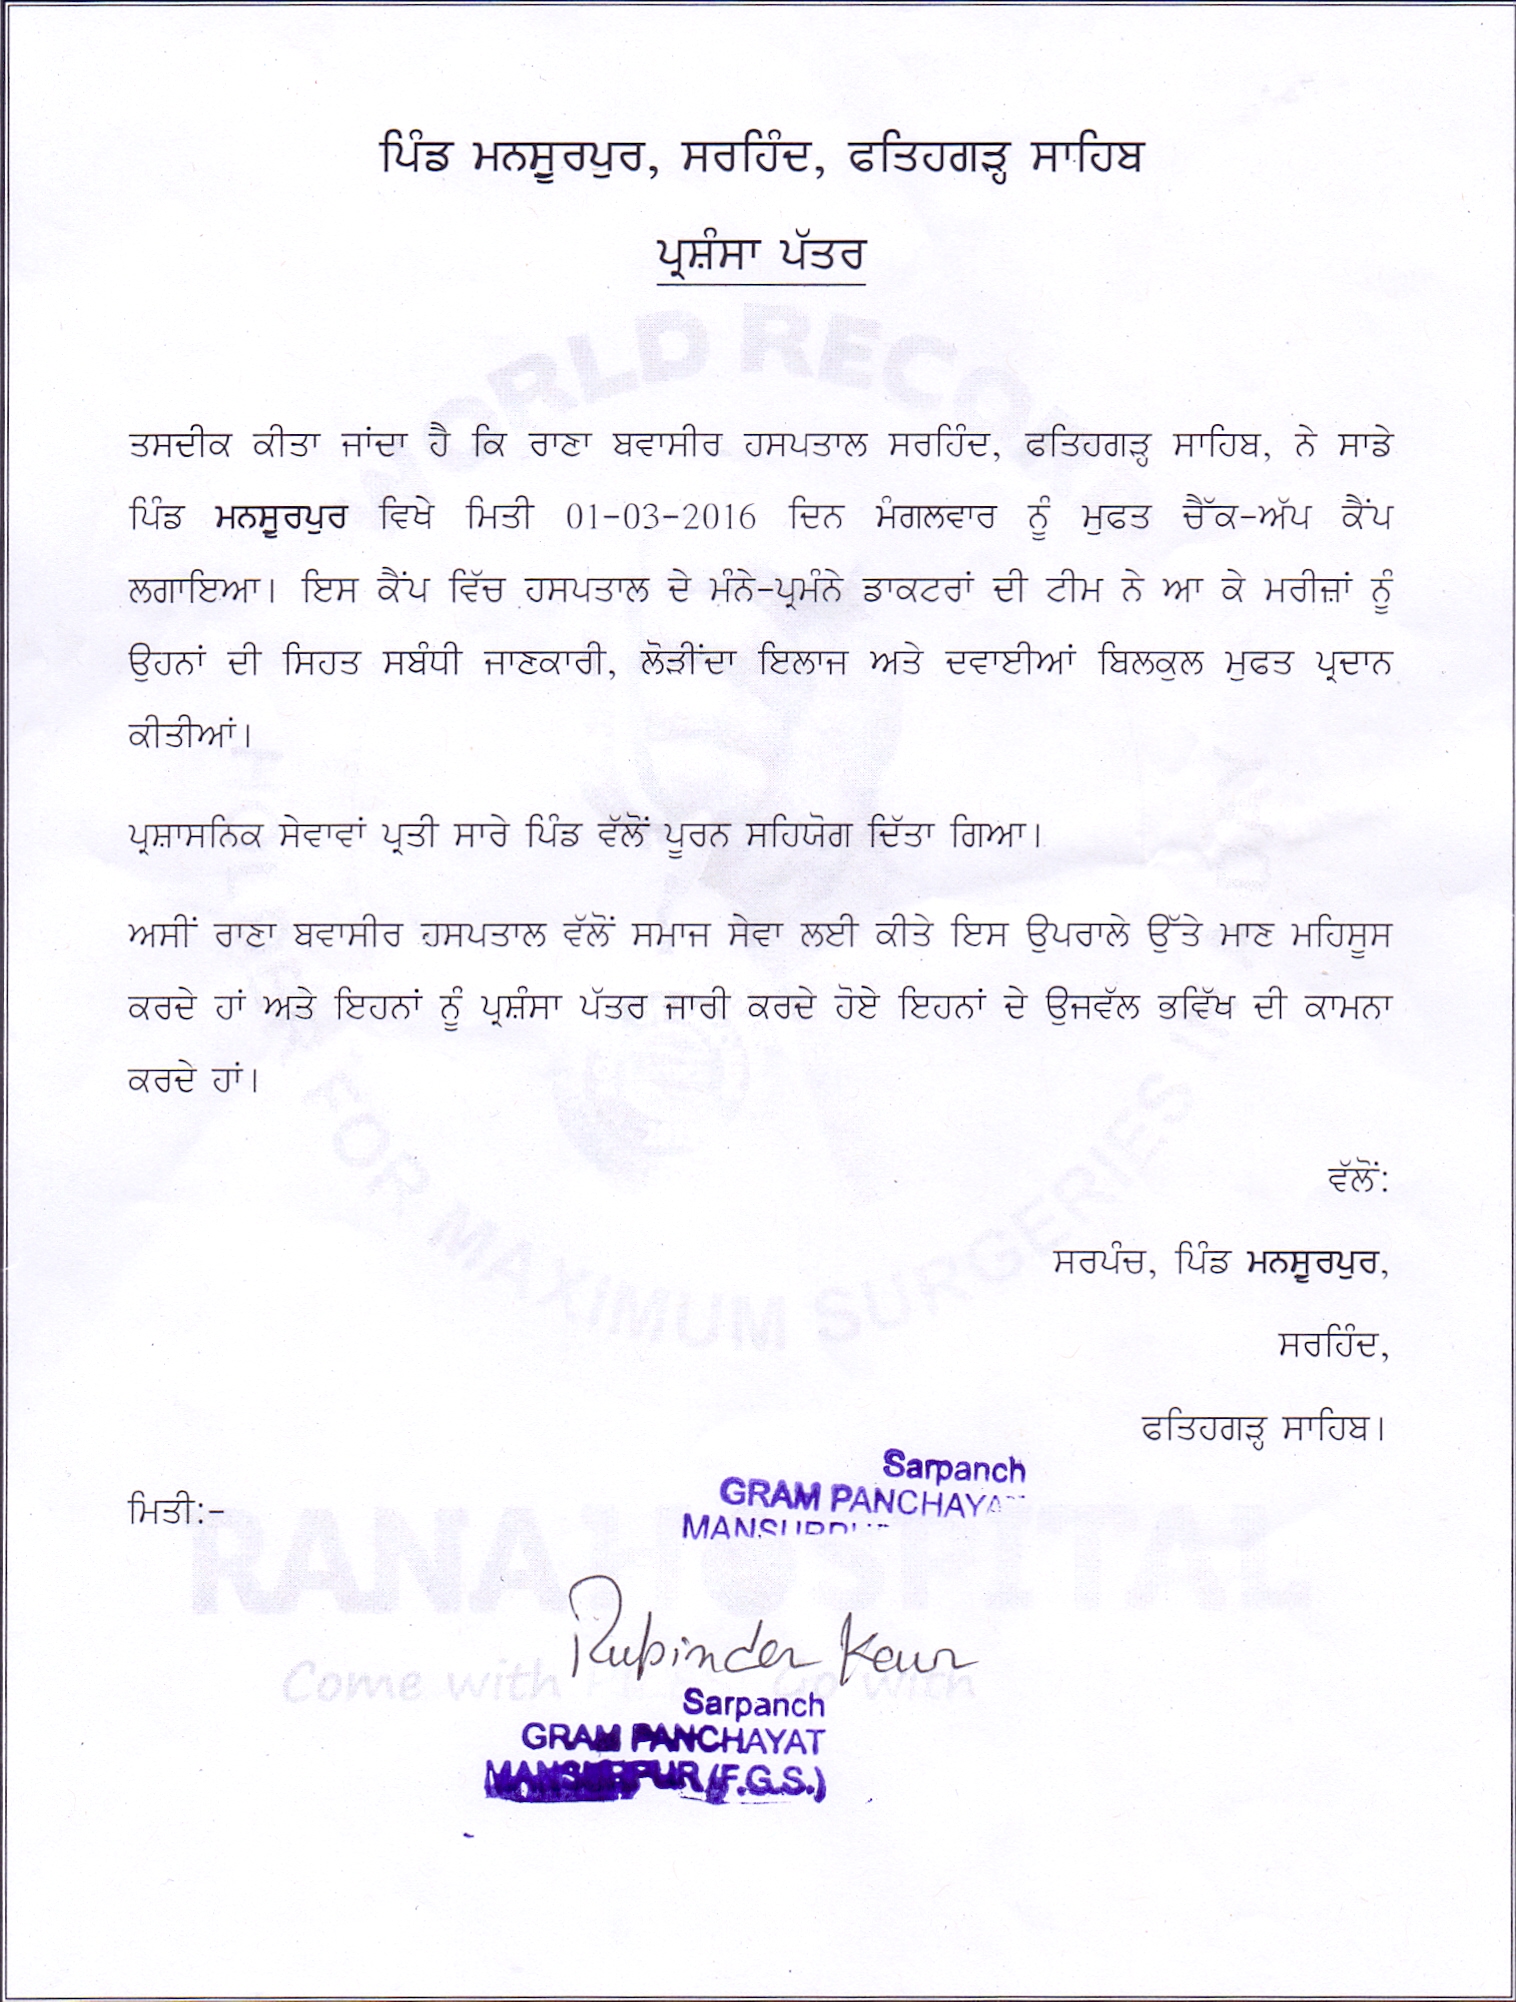 ਪਿੰਡ ਮਨਸੂਰਪੁਰ, ਸਰਹਿੰਦ, ਫਤਿਹਗੜ੍ਹ ਸਾਹਿਬ
ਪ੍ਰਸ਼ੰਸਾ ਪੱਤਰ
WORLD RECORD
ਤਸਦੀਕ ਕੀਤਾ ਜਾਂਦਾ ਹੈ ਕਿ ਰਾਣਾ ਬਵਾਸੀਰ ਹਸਪਤਾਲ ਸਰਹਿੰਦ, ਫਤਿਹਗੜ੍ਹ ਸਾਹਿਬ, ਨੇ ਸਾਡੇ
ਪਿੰਡ ਮਨਸੂਰਪੁਰ ਵਿਖੇ ਮਿਤੀ 01-03-2016 ਦਿਨ ਮੰਗਲਵਾਰ ਨੂੰ ਮੁਫਤ ਚੈੱਕ-ਅੱਪ ਕੈਂਪ
ਲਗਾਇਆ। ਇਸ ਕੈਂਪ ਵਿੱਚ ਹਸਪਤਾਲ ਦੇ ਮੰਨੇ-ਪ੍ਰਮੰਨੇ ਡਾਕਟਰਾਂ ਦੀ ਟੀਮ ਨੇ ਆ ਕੇ ਮਰੀਜ਼ਾਂ ਨੂੰ
ਉਹਨਾਂ ਦੀ ਸਿਹਤ ਸਬੰਧੀ ਜਾਣਕਾਰੀ, ਲੋੜੀਂਦਾ ਇਲਾਜ ਅਤੇ ਦਵਾਈਆਂ ਬਿਲਕੁਲ ਮੁਫਤ ਪ੍ਰਦਾਨ
ਕੀਤੀਆਂ।
ਪ੍ਰਸ਼ਾਸਨਿਕ ਸੇਵਾਵਾਂ ਪ੍ਰਤੀ ਸਾਰੇ ਪਿੰਡ ਵੱਲੋਂ ਪੂਰਨ ਸਹਿਯੋਗ ਦਿੱਤਾ ਗਿਆ।
ਅਸੀਂ ਰਾਣਾ ਬਵਾਸੀਰ ਹਸਪਤਾਲ ਵੱਲੋਂ ਸਮਾਜ ਸੇਵਾ ਲਈ ਕੀਤੇ ਇਸ ਉਪਰਾਲੇ ਉੱਤੇ ਮਾਣ ਮਹਿਸੂਸ
ਕਰਦੇ ਹਾਂ ਅਤੇ ਇਹਨਾਂ ਨੂੰ ਪ੍ਰਸ਼ੰਸਾ ਪੱਤਰ ਜਾਰੀ ਕਰਦੇ ਹੋਏ ਇਹਨਾਂ ਦੇ ਉਜਵੱਲ ਭਵਿੱਖ ਦੀ ਕਾਮਨਾ
ਕਰਦੇ ਹਾਂ।
FOR MAXIMUM SURGERIES IN
ਵੱਲੋਂ:
ਸਰਪੰਚ, ਪਿੰਡ ਮਨਸੂਰਪੁਰ,
ਸਰਹਿੰਦ,
ਫਤਿਹਗੜ੍ਹ ਸਾਹਿਬ।
Sarpanch
GRAM PANCHAYAT
ਮਿਤੀ:-
RANA HOSPITAL
Rupinder Kaur
Come with Go with
Sarpanch
GRAM PANCHAYAT
MANSURPUR (F.G.S.)